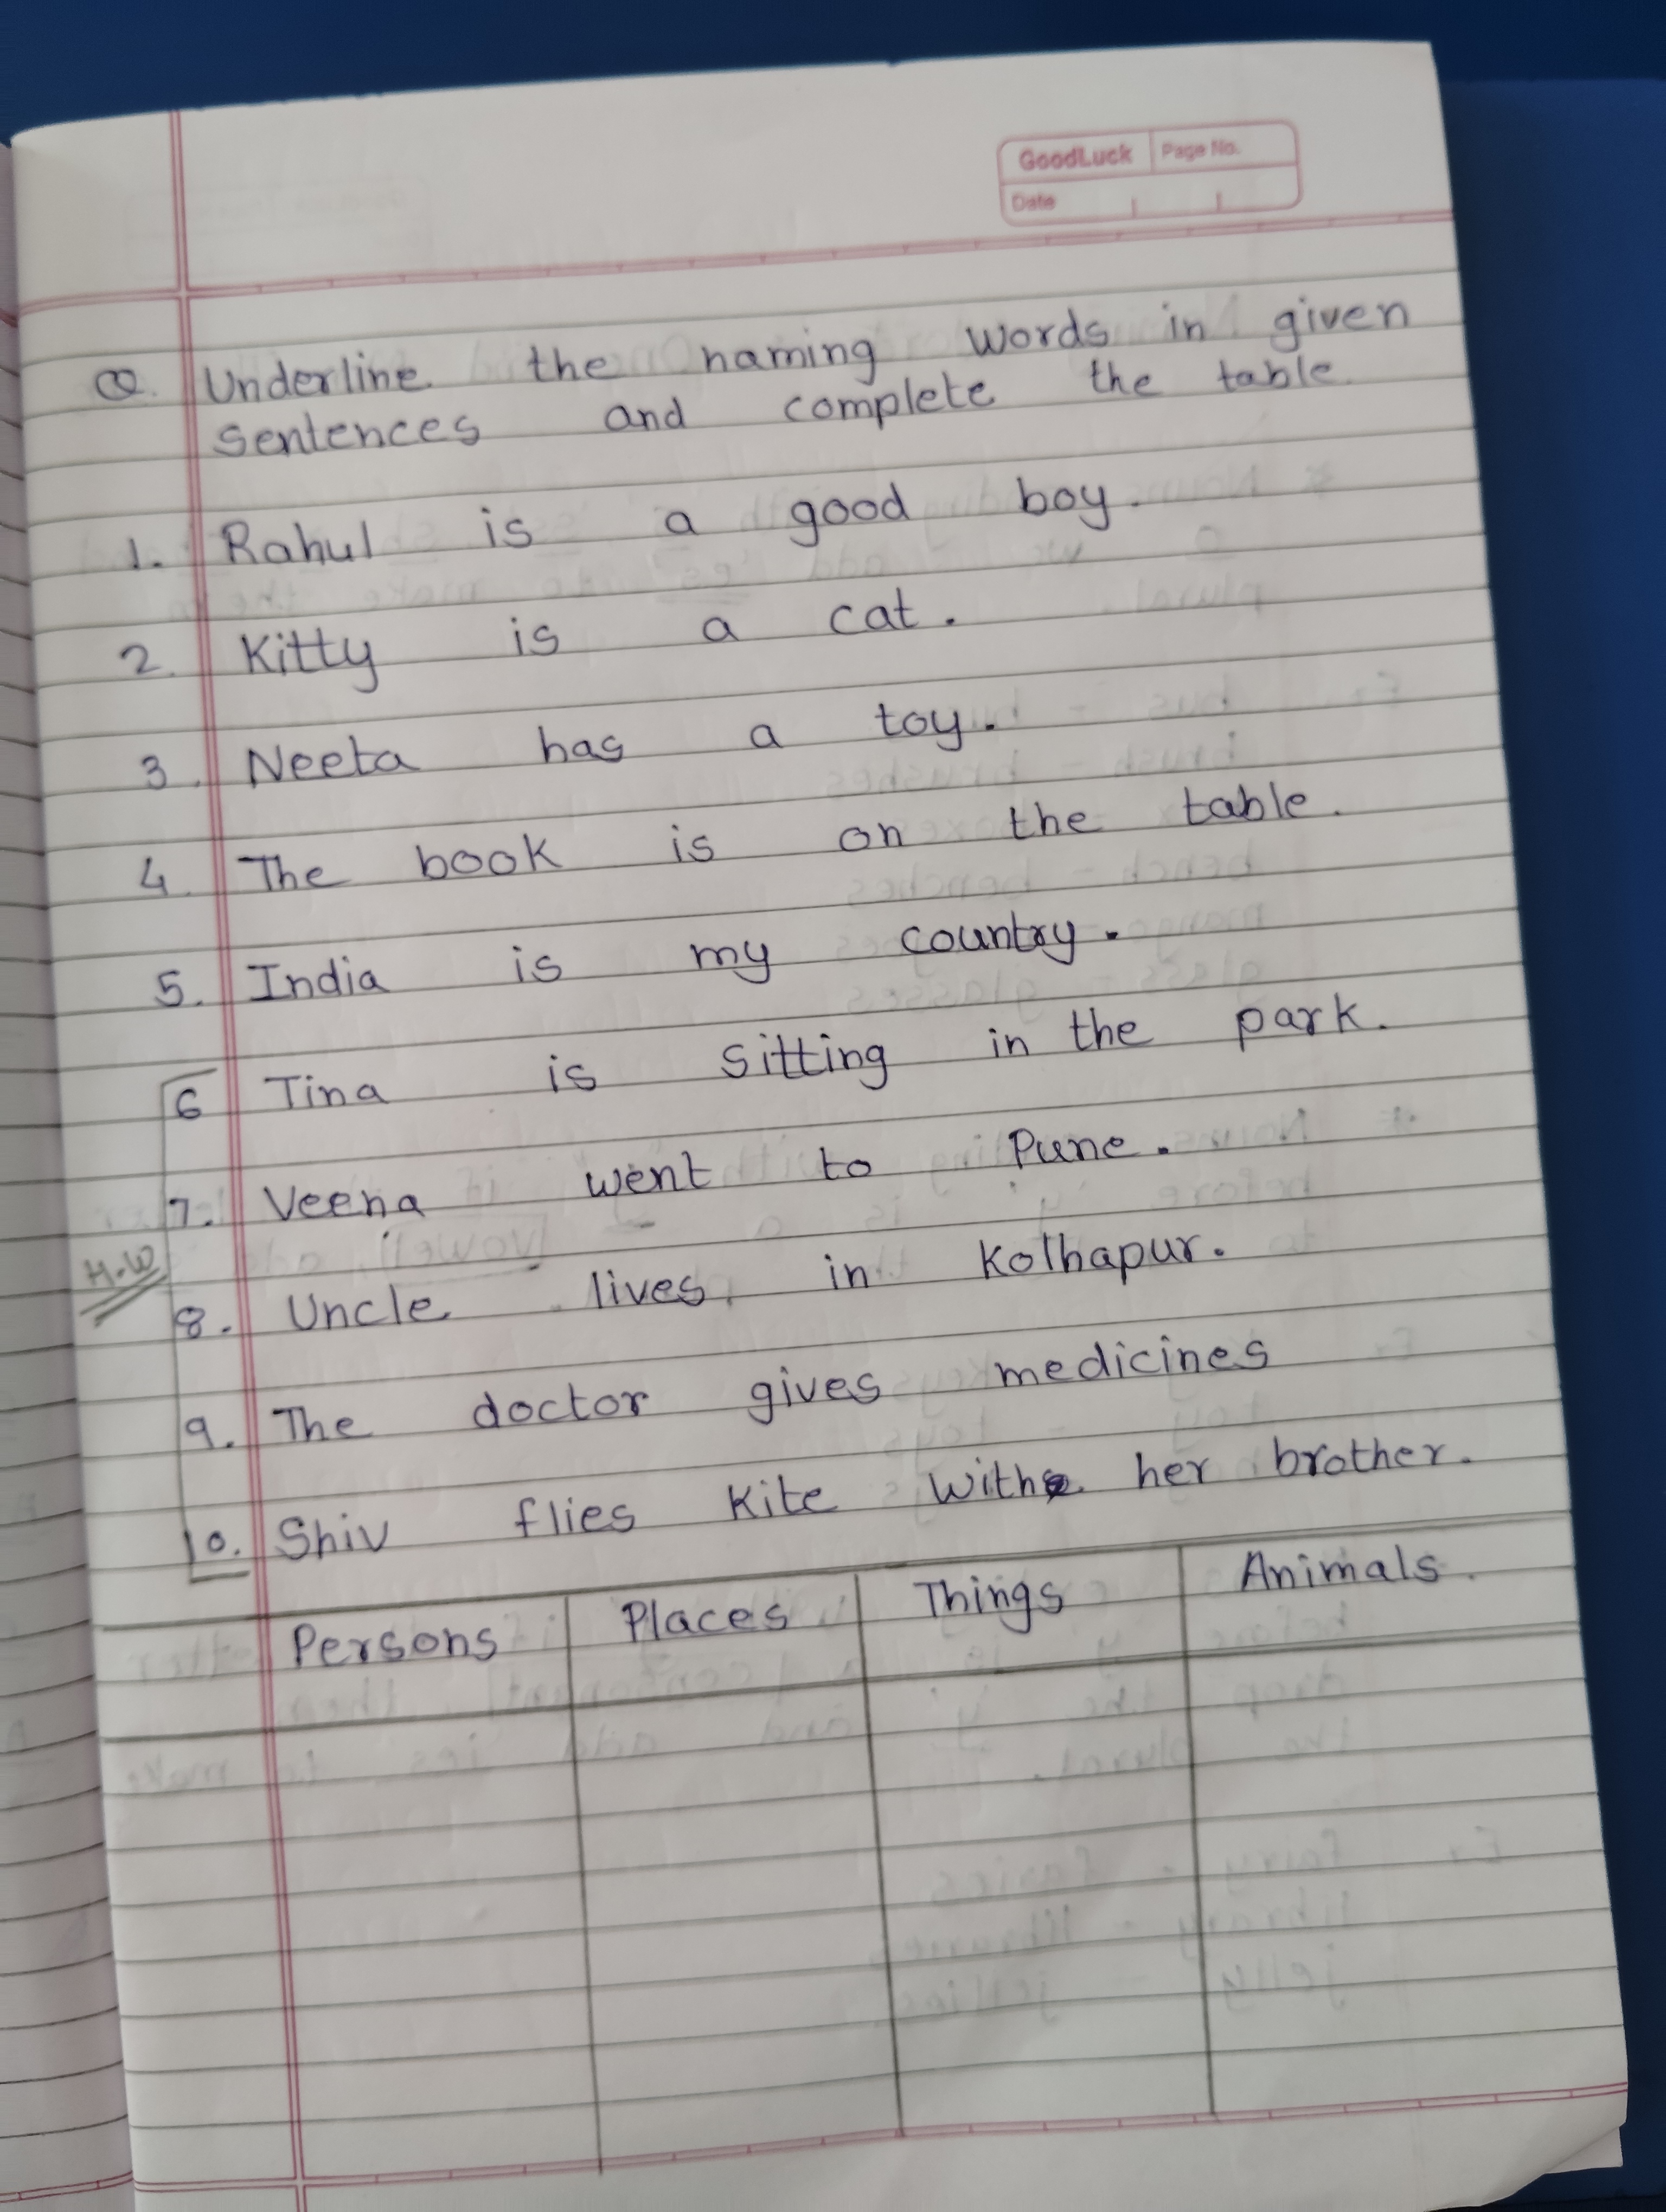 GoodLuck Page No.
Date
Q. Underline the naming words in given
sentences and complete the table.
1. Rahul is a good boy.
2. Kitty is a cat.
3. Neeta has a toy.
4. The book is on the table.
5. India is my country.
6 Tina is sitting in the park.
7. Veena went to Pune.
H.W
8. Uncle lives in Kolhapur.
9. The doctor gives medicines
10. Shiv flies kite with her brother.
Persons Places Things Animals.